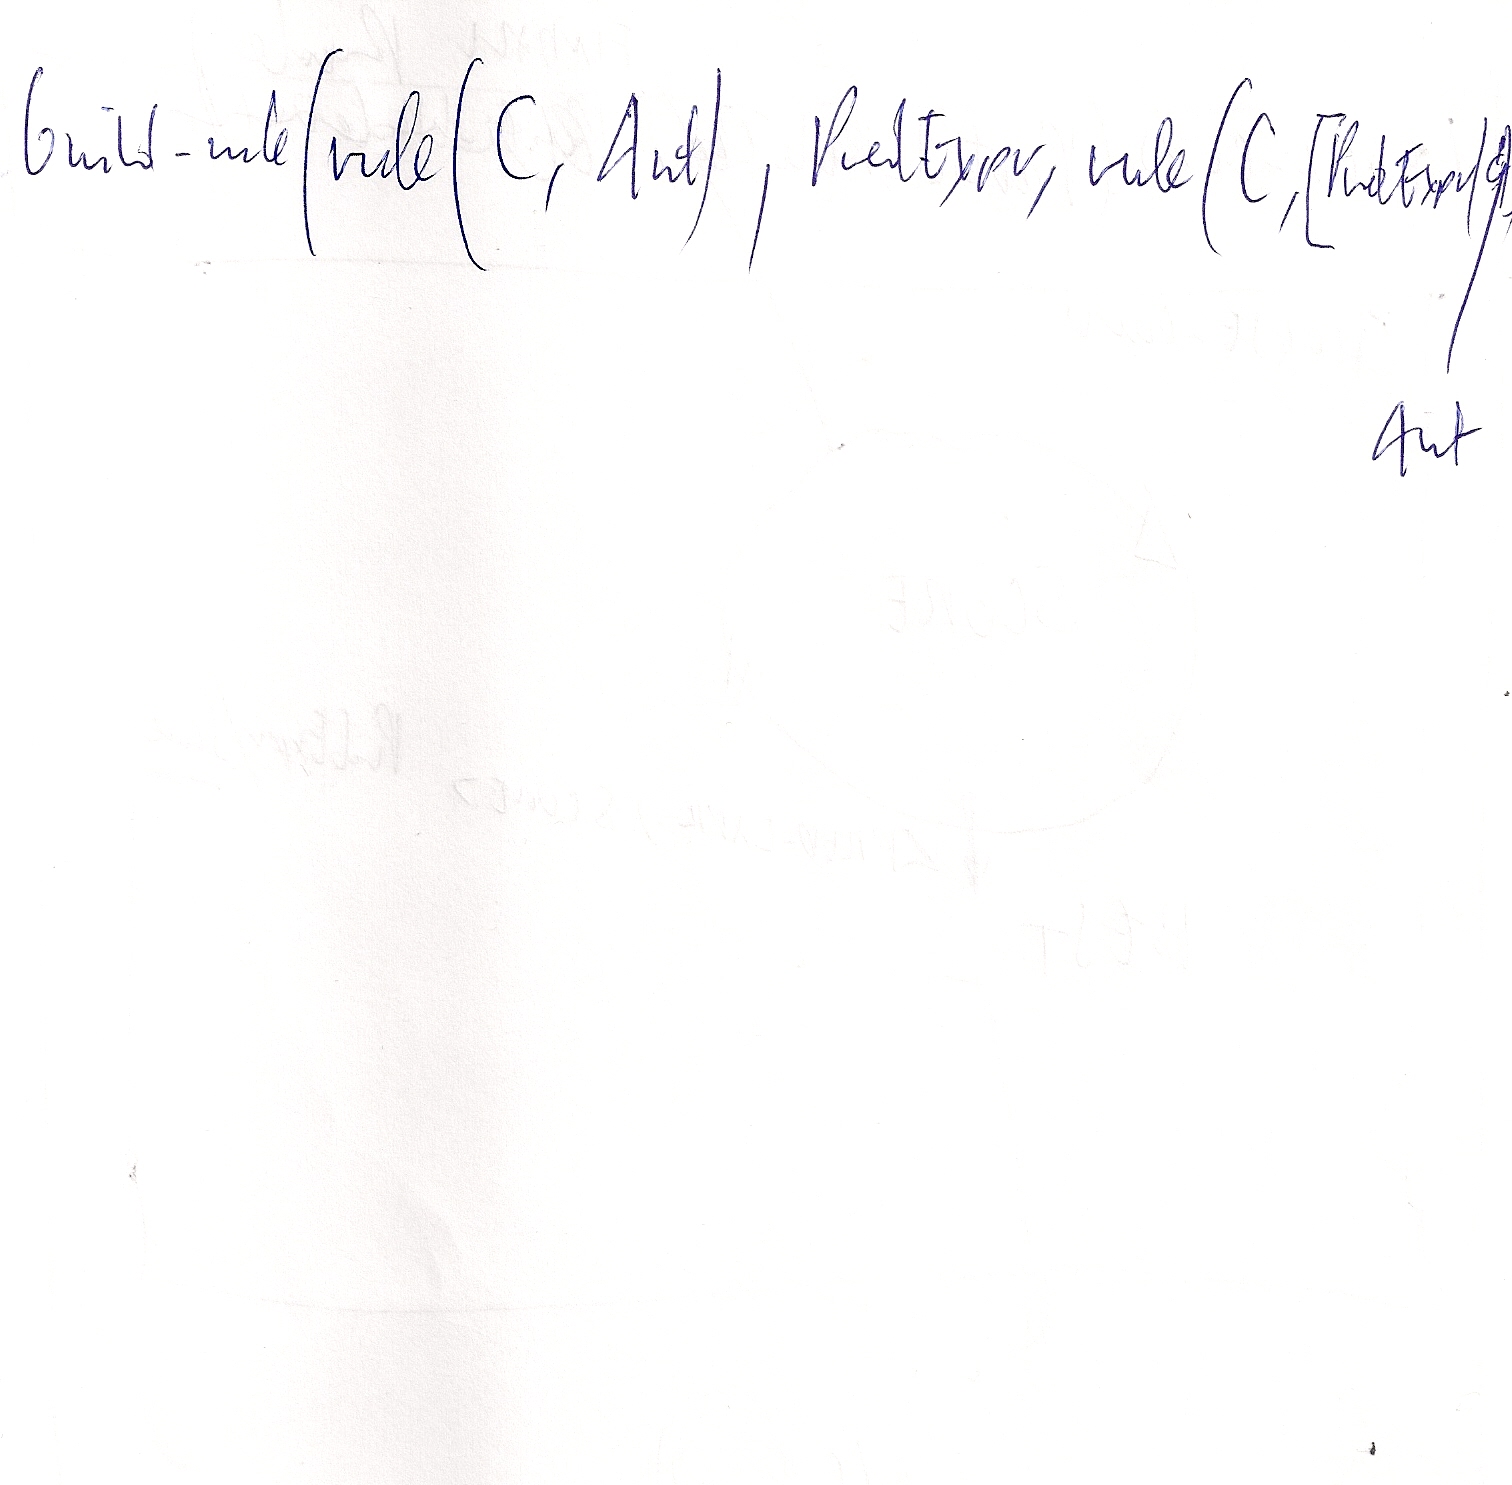 build-rule(rule(C, Ant), PredExpr, rule(C,[PredExpr|
Ant